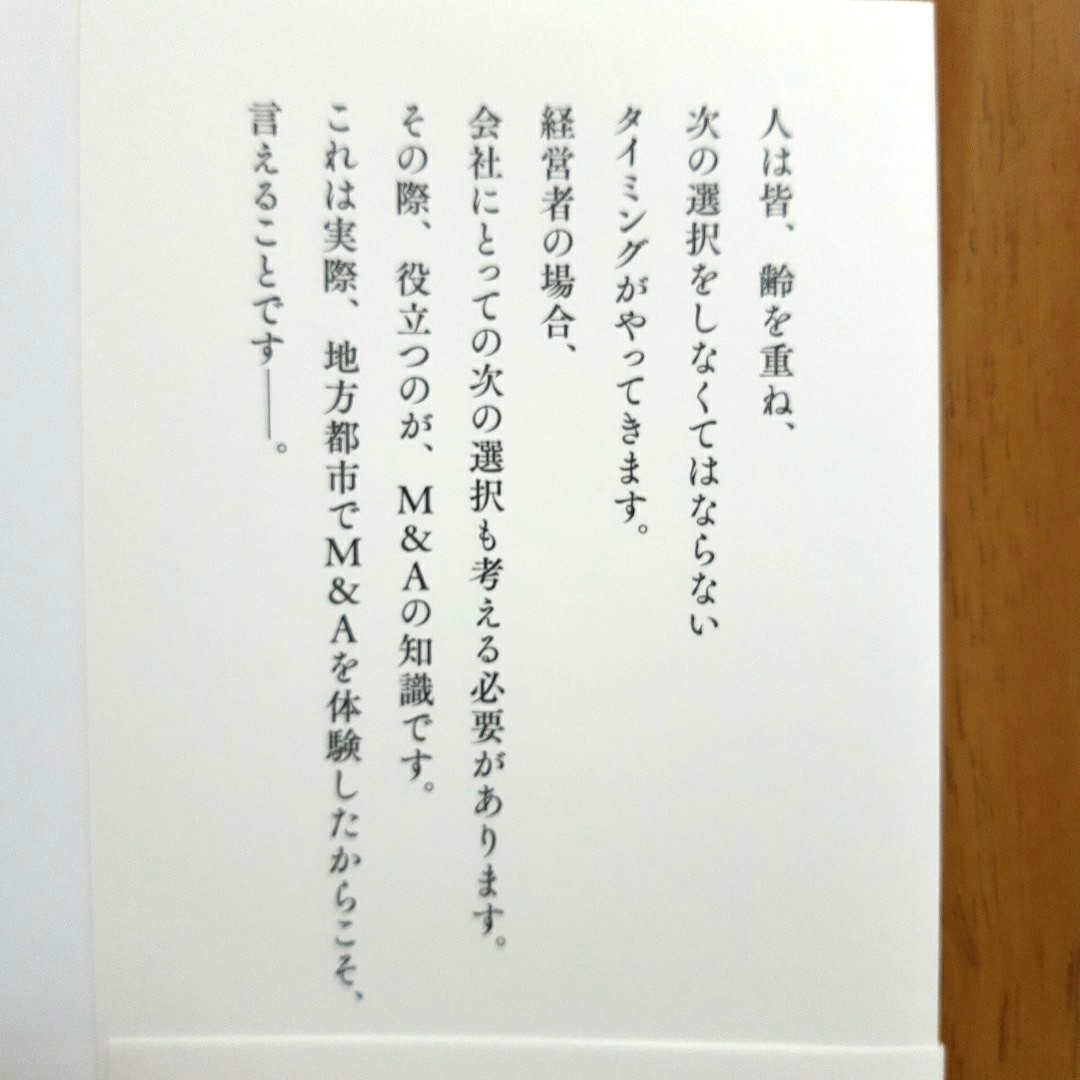 人は皆、齢を重ね、
次の選択をしなくてはならない
タイミングがやってきます。
経営者の場合、
会社にとっての次の選択も考える必要があります。
その際、役立つのが、M&Aの知識です。
これは実際、地方都市でM&Aを体験したからこそ、
言えることです――。